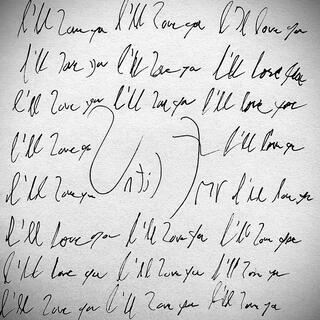 I'll love you I'll love you I'll love you
I'll love you I'll love you I'll love you
I'll love you I'll love you I'll love you
I'll love you I'll love you
I'll love you I'll love you
I'll love you I'll love you I'll love you
I'll love you I'll love you I'll love you
I'll love you I'll love you I'll love you